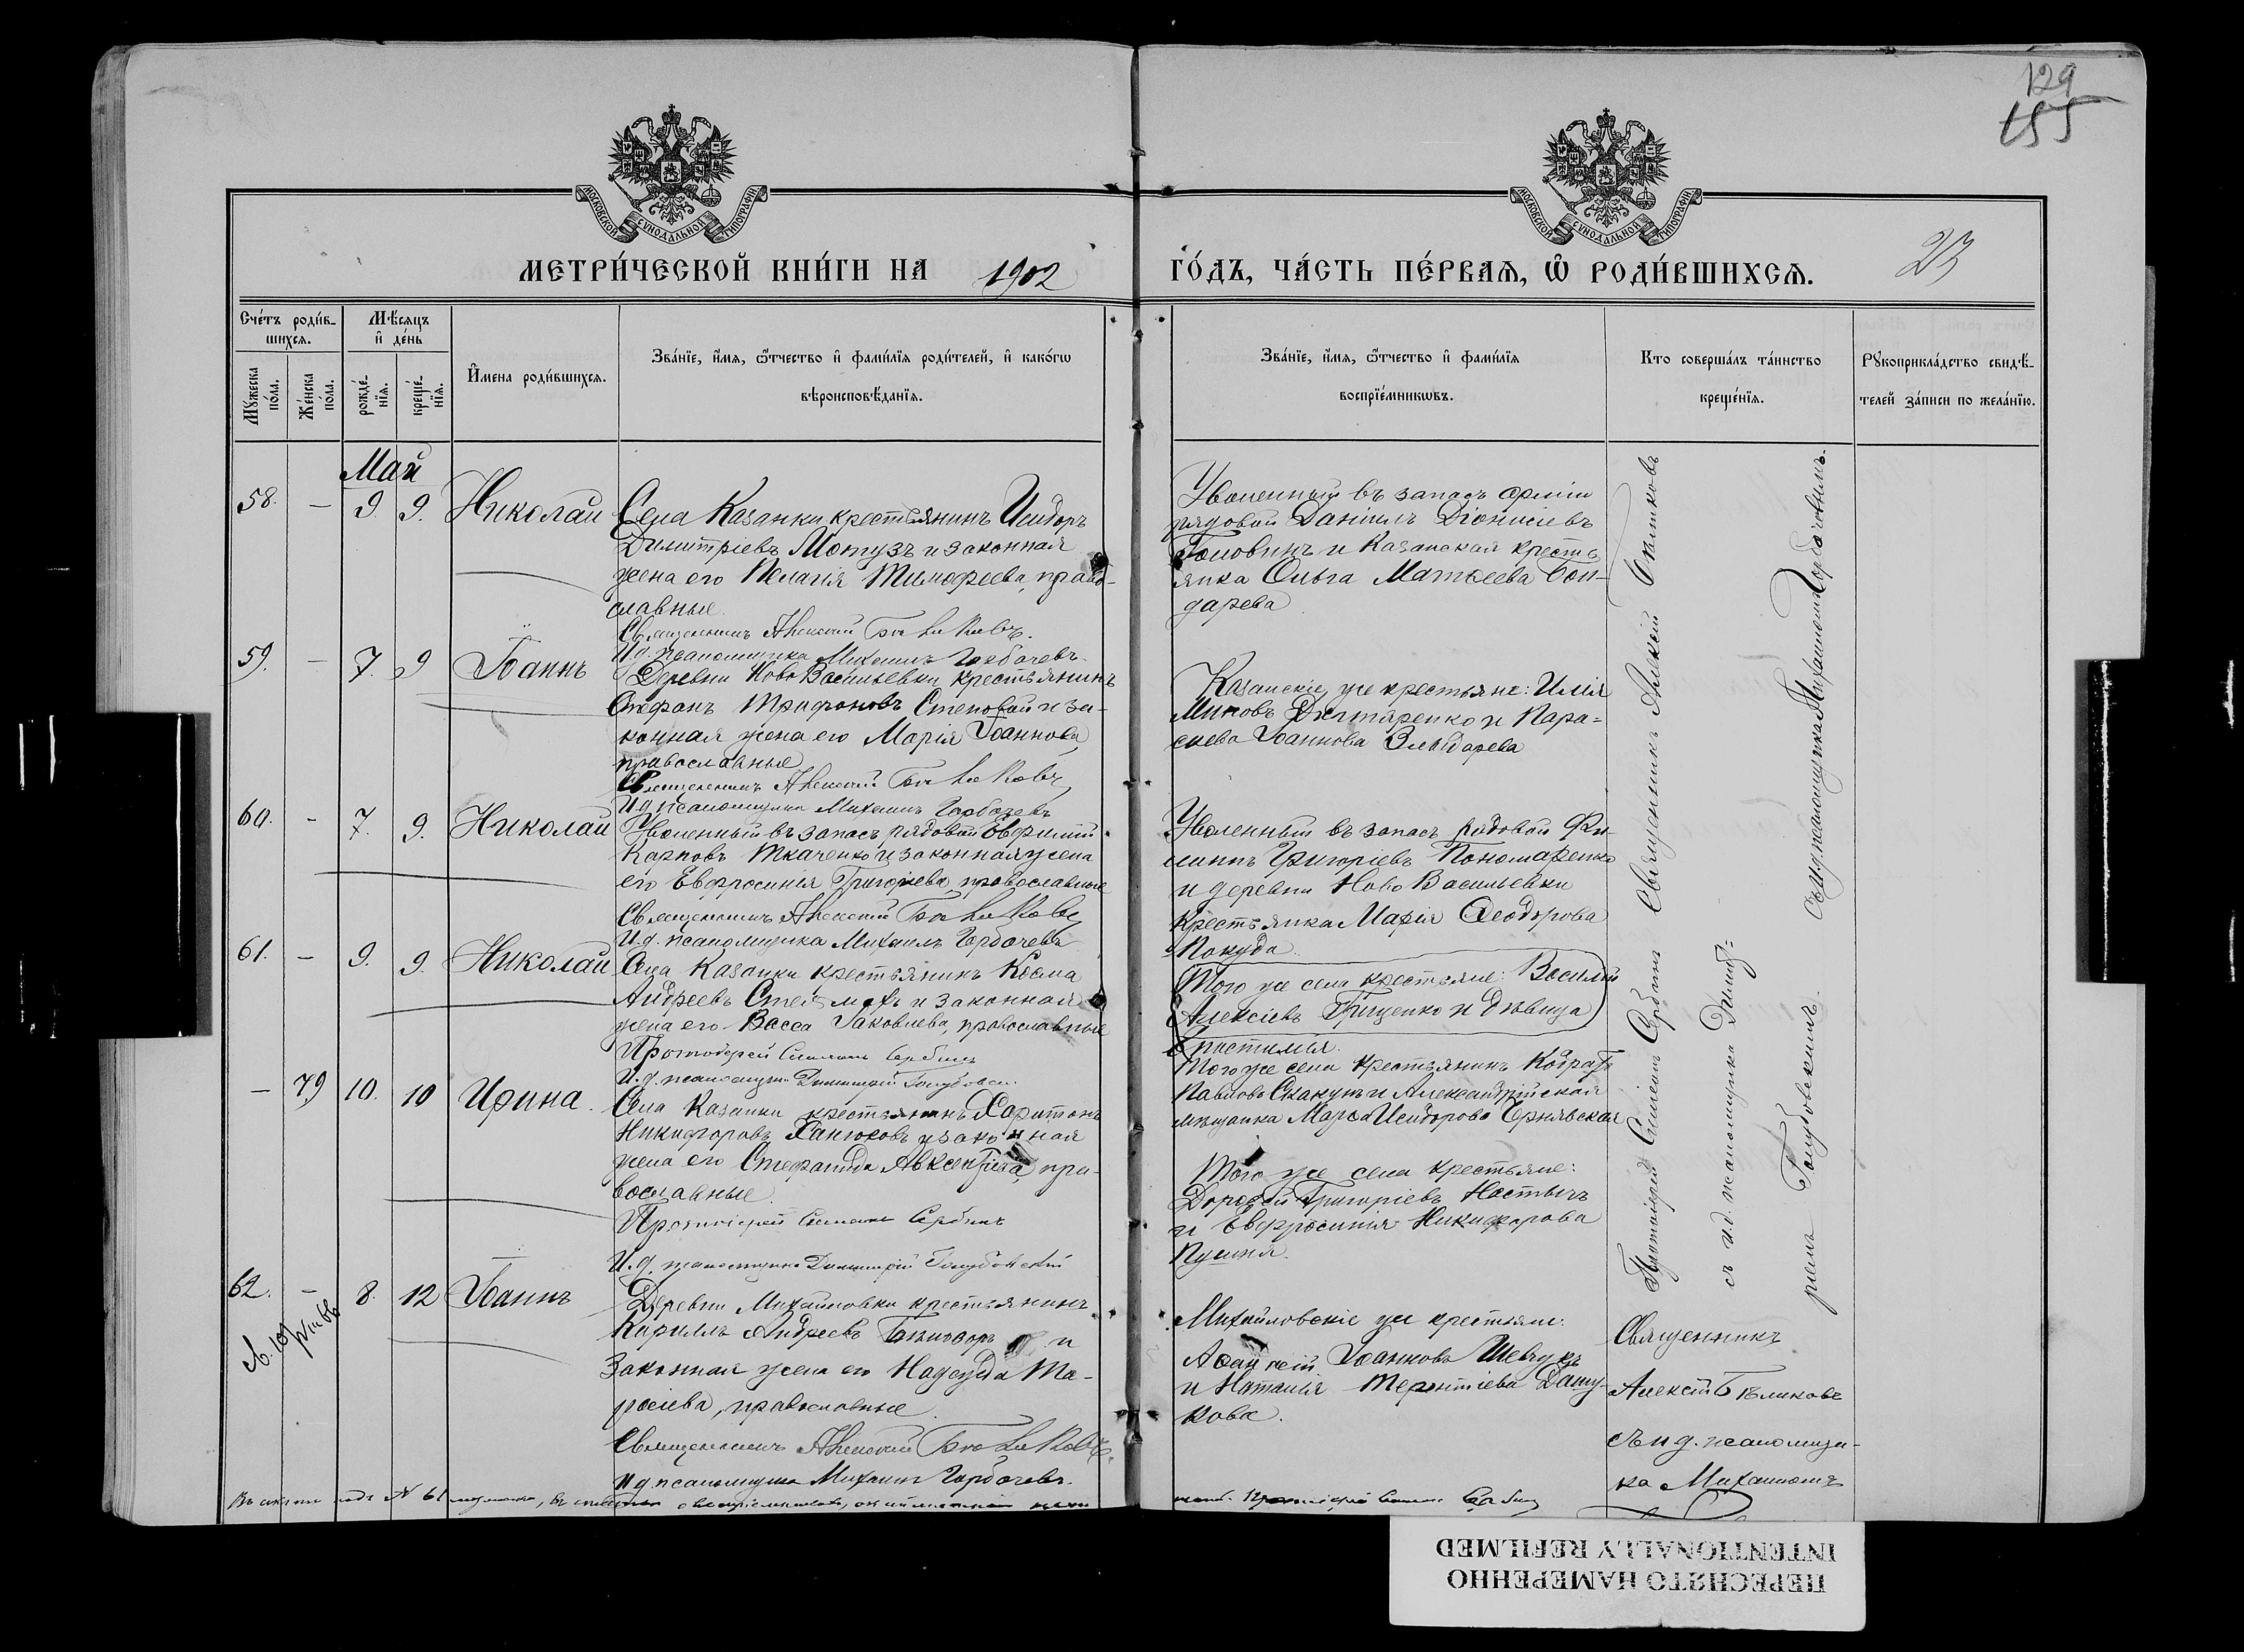 129
155
МОСКОВСКОЙ СѴНОДАЛЬНОЙ ТИПОГРАФІИ
МОСКОВСКОЙ СѴНОДАЛЬНОЙ ТИПОГРАФІИ
МЕТРИ́ЧЕСКОЙ КНИ́ГИ НА 1902
ГО́ДЪ, ЧА́СТЬ ПЕ́РВАѦ, Ѽ РОДИ́ВШИХСѦ.
23
Сче́тъ роди́в-
шихсѧ.
Мꙋ́жеска по́ла.
Же́нска по́ла.
Мѣ́сѧцъ и҆ де́нь
рожде́-
нїѧ.
креще́-
нїѧ.
И҆мена роди́вшихсѧ.
Зва́нїе, и҆́мѧ, ѻ҆́тчество и҆ фами́лїѧ роди́телей, и҆ како́гѡ
вѣроисповѣ́данїѧ.
Зва́нїе, и҆́мѧ, ѻ҆́тчество и҆ фами́лїѧ
воспрїе́мникѡвъ.
Кто соверша́лъ та́инство
креще́нїѧ.
Рꙋкоприкла́дство свидѣ́-
телей за́писи по жела́нїю.
Май
58. — 9. 9. Николай
Села Казанки крестьянинъ Исидоръ
Димитріевъ Мотузъ и законная
жена его Пелагія Тимофеева, право-
славные.
Священникъ Алексій Бѣликовъ.
И.д. псаломщика Михаилъ Горбачевъ.
Уволенный въ запасъ арміи
рядовой Даніилъ Діонисіевъ
Головинъ и Казанская кресть
янка Ольга Матѳеева Бон-
дарева
59. — 7. 9 Іоаннъ
Деревни Ново Васильевки крестьянинъ
Стефанъ Трифоновъ Степовой и за-
конная жена его Марія Іоаннова
православные
Священникъ Алексій Бѣликовъ
И.д. псаломщика Михаилъ Горбачевъ
Казанскіе же крестьяне: Илія
Миновъ Дегтяренко и Пара-
скева Іоаннова
60. — 7. 9. Николай
Уволенный въ запасъ рядовой Евфимій
Карповъ Ткаченко и законная жена
его Евфросинія Григоріева, православные
Священникъ Алексій Бѣликовъ
И.д. псаломщика Михаилъ Горбачевъ
Уволенный въ запасъ рядовой Фи-
липпъ Григоріевъ Пономаренко
и деревни Ново Васильевки
крестьянка Марія Ѳеодорова
Покуда.
61. — 9. 9. Николай
Села Казанки крестьянинъ Косма
Андреевъ Стельмахъ и законная
жена его Васса Іаковлева, православные
Протоіерей Симеонъ Сербинъ
И.д. псаломщика Димитрій Голубовскій
Того же села крестьяне: Василій
Алексіевъ Грищенко и дѣвица
Того же села крестьянинъ Кодратъ
Павловъ Скакунъ и Александрійская
мѣщанка Марѳа Исидорова Чернявская
— 79 10. 10 Ирина.
Села Казанки крестьянинъ Харитонъ
Никифоровъ Ханюковъ и законная
жена его Стефанида Авксентіева, пра-
вославные.
Протоіерей Симеонъ Сербинъ
И.д. псаломщика Димитрій Голубовскій
Того же села крестьяне:
Дороѳей Григоріевъ Настычъ
и Евфросинія Никифорова
62. — 8. 12 Іоаннъ
Деревни Михайловки крестьянинъ
Кириллъ Андреевъ и
законная жена его Надежда Та-
расіева, православные.
Священникъ Алексій Бѣликовъ.
И.д. псаломщика Михаилъ Горбачевъ.
Михайловскіе же крестьяне:
Іоанновъ Шевчукъ
и Наталія Терентіева Дашу-
кова.
Священникъ Алексій Бѣликовъ
съ и.д. псаломщика Михаиломъ Горбачевымъ.
Протоіерей Симеонъ Сербинъ
съ и.д. псаломщика Димит-
ріемъ Голубовскимъ.
Священникъ
Алексій Бѣликовъ
съ и.д. псаломщи-
ка Михаиломъ
ПЕРЕСНЯТО НАМЕРЕННО
INTENTIONALLY REFILMED